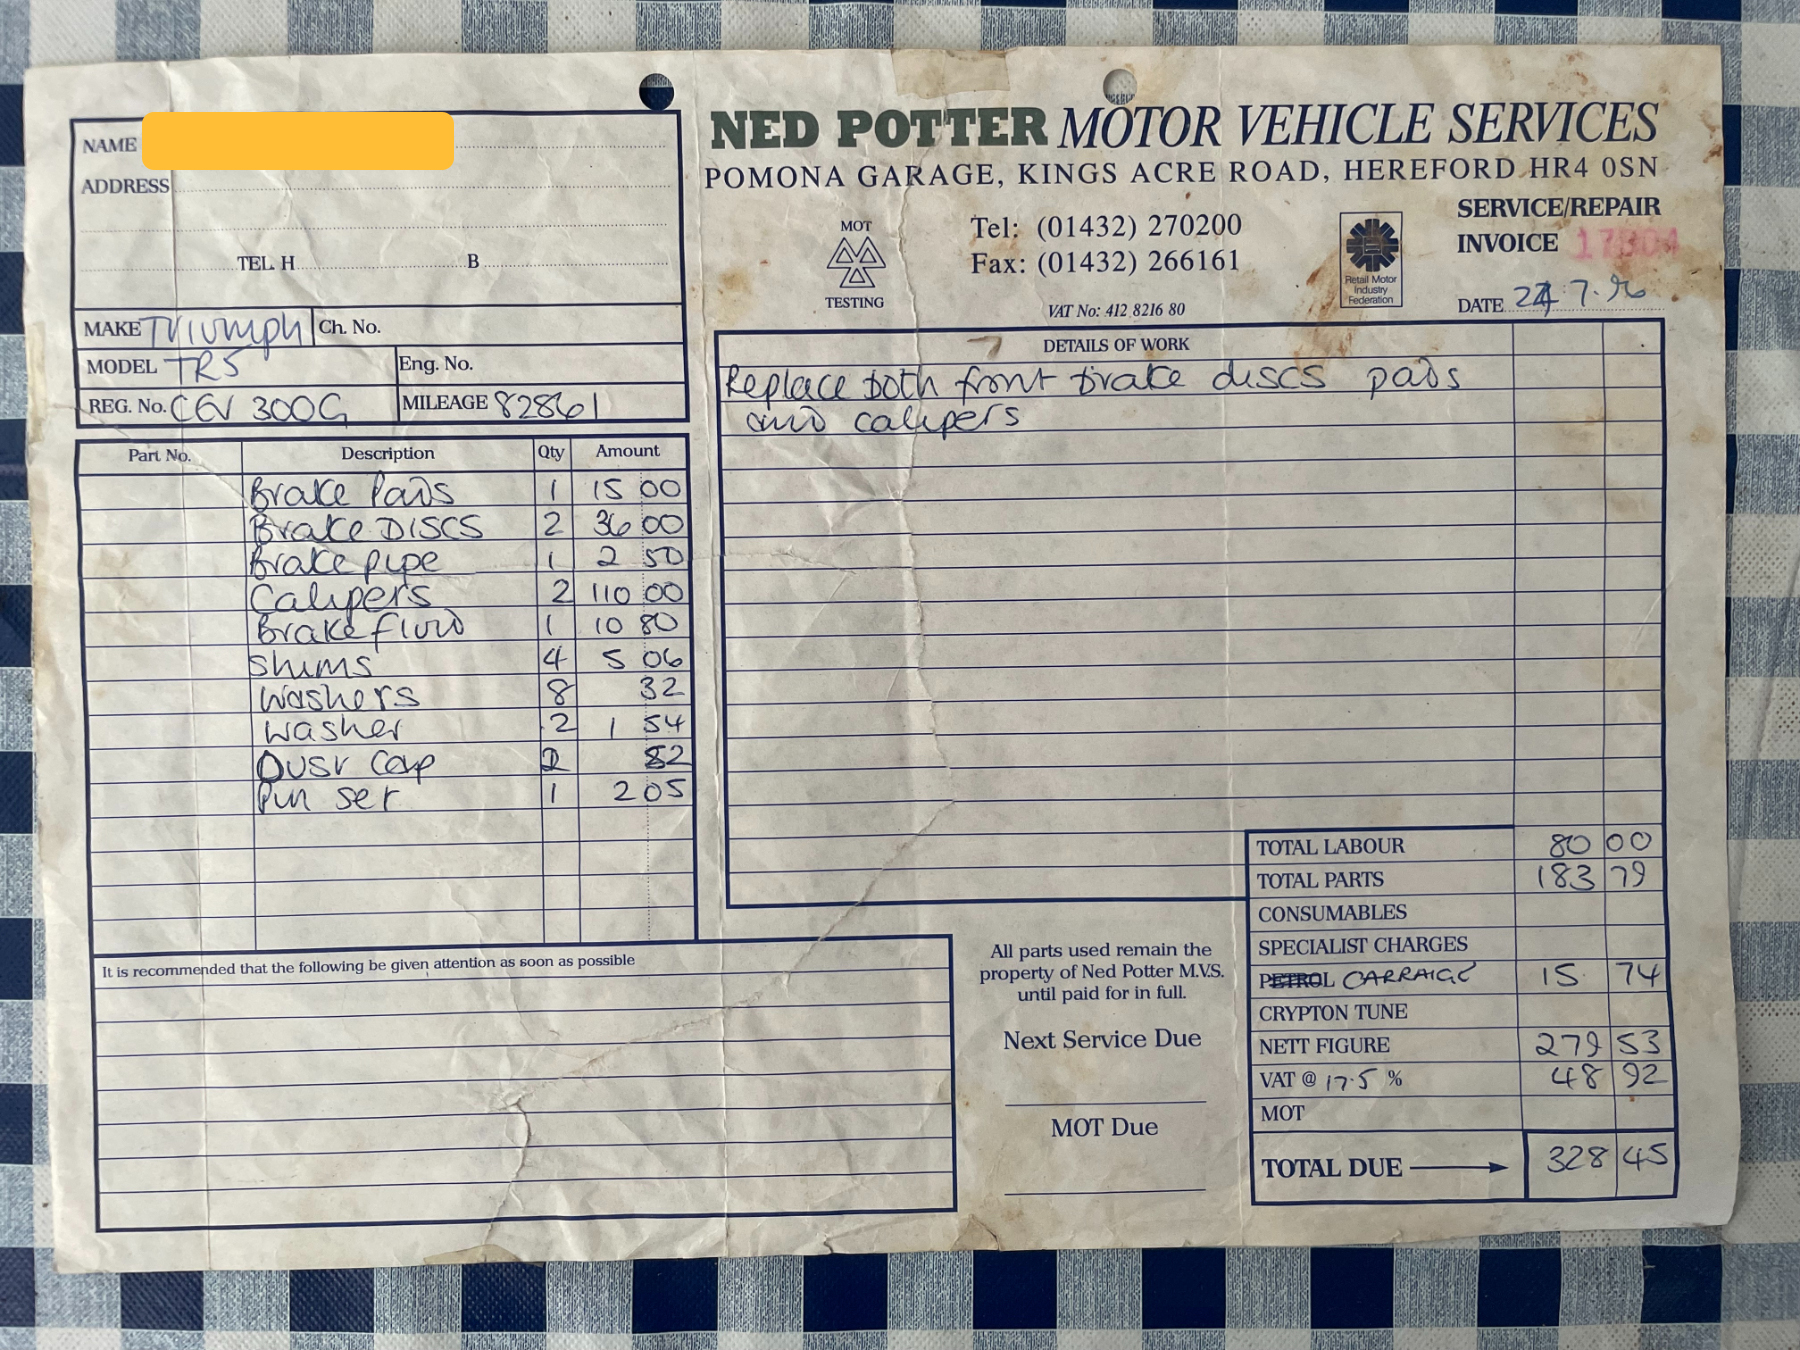 NAME
ADDRESS
TEL H B
MAKE Triumph Ch. No.
MODEL TR5 Eng. No.
REG. No. CEV 300G MILEAGE 82861
NED POTTER MOTOR VEHICLE SERVICES
POMONA GARAGE, KINGS ACRE ROAD, HEREFORD HR4 0SN
MOT
TESTING
Tel: (01432) 270200
Fax: (01432) 266161
VAT No: 412 8216 80
Retail Motor
Industry
Federation
SERVICE/REPAIR
INVOICE
DATE 7.96
Part No. Description Qty Amount
Brake Pads 1 15 00
Brake DISCS 2 36 00
Brake pipe 1 2 50
Calipers 2 110 00
Brake fluid 1 10 80
Shims 4 5 06
Washers 8 32
Washer 2 1 54
Dust Cap 2 52
Pin set 1 2 05
DETAILS OF WORK
Replace both front brake discs pads
and calipers
It is recommended that the following be given attention as soon as possible
All parts used remain the
property of Ned Potter M.V.S.
until paid for in full.
Next Service Due
MOT Due
TOTAL LABOUR 80 00
TOTAL PARTS 183 79
CONSUMABLES
SPECIALIST CHARGES
PETROL CARRAIGE 15 74
CRYPTON TUNE
NETT FIGURE 279 53
VAT @ 17.5 % 48 92
MOT
TOTAL DUE 328 45